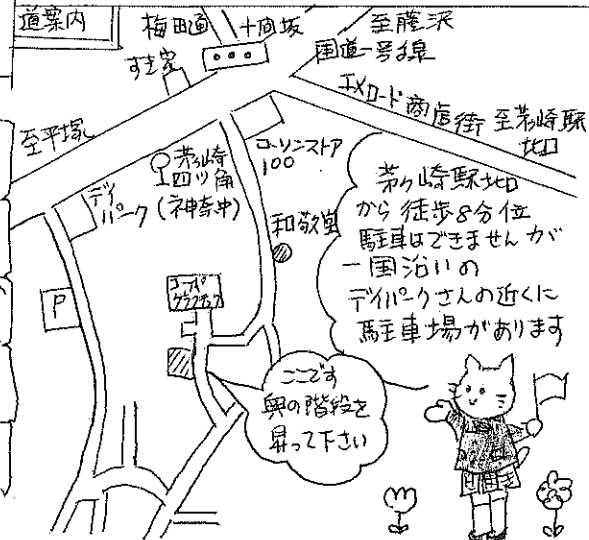 道案内
梅田通
十間坂
至藤沢
国道一号線
すき家
エメロード商店街 至茅ヶ崎駅
北口
至平塚
茅ヶ崎
四ツ角
(神奈中)
ローソンストア
100
デイ
パーク
和敬堂
P
茅ヶ崎駅北口
から徒歩8分位
駐車はできませんが
一国沿いの
デイパークさんの近くに
駐車場があります
ここです
奥の階段を
昇って下さい